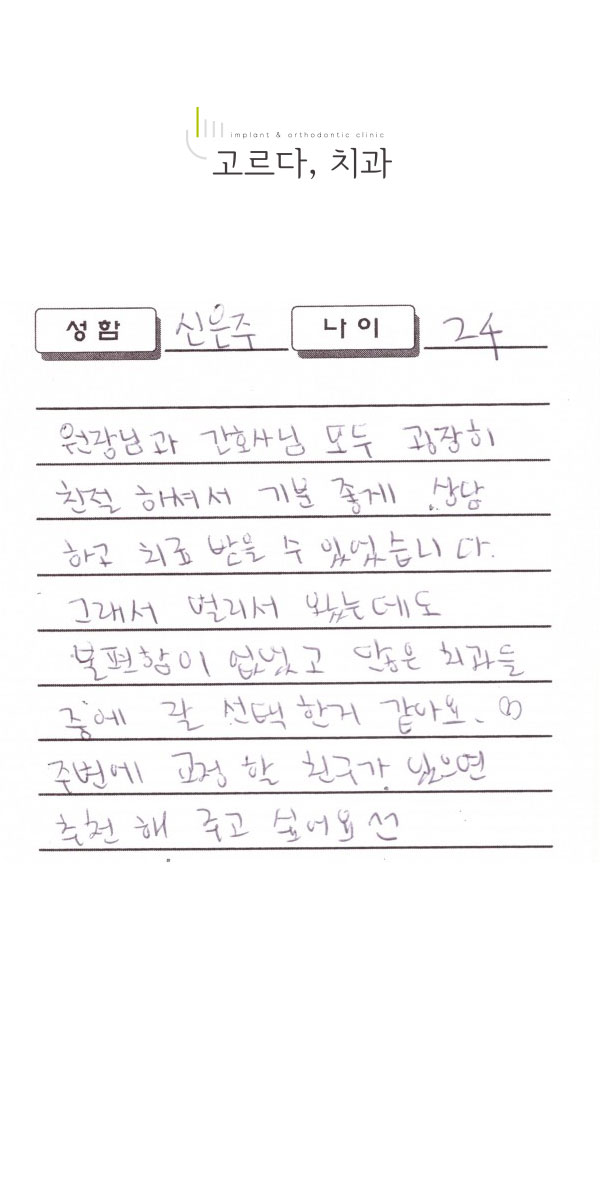 implant & orthodontic clinic
고르다, 치과
성함 신은주 나이 24
원장님과 간호사님 모두 굉장히
친절 하셔서 기분 좋게 상담
하고 치료 받을 수 있었습니다.
그래서 멀리서 왔는데도
불편함이 없었고 많은 치과들
중에 잘 선택한거 같아요.
주변에 교정 할 친구가 있으면
추천 해 주고 싶어요